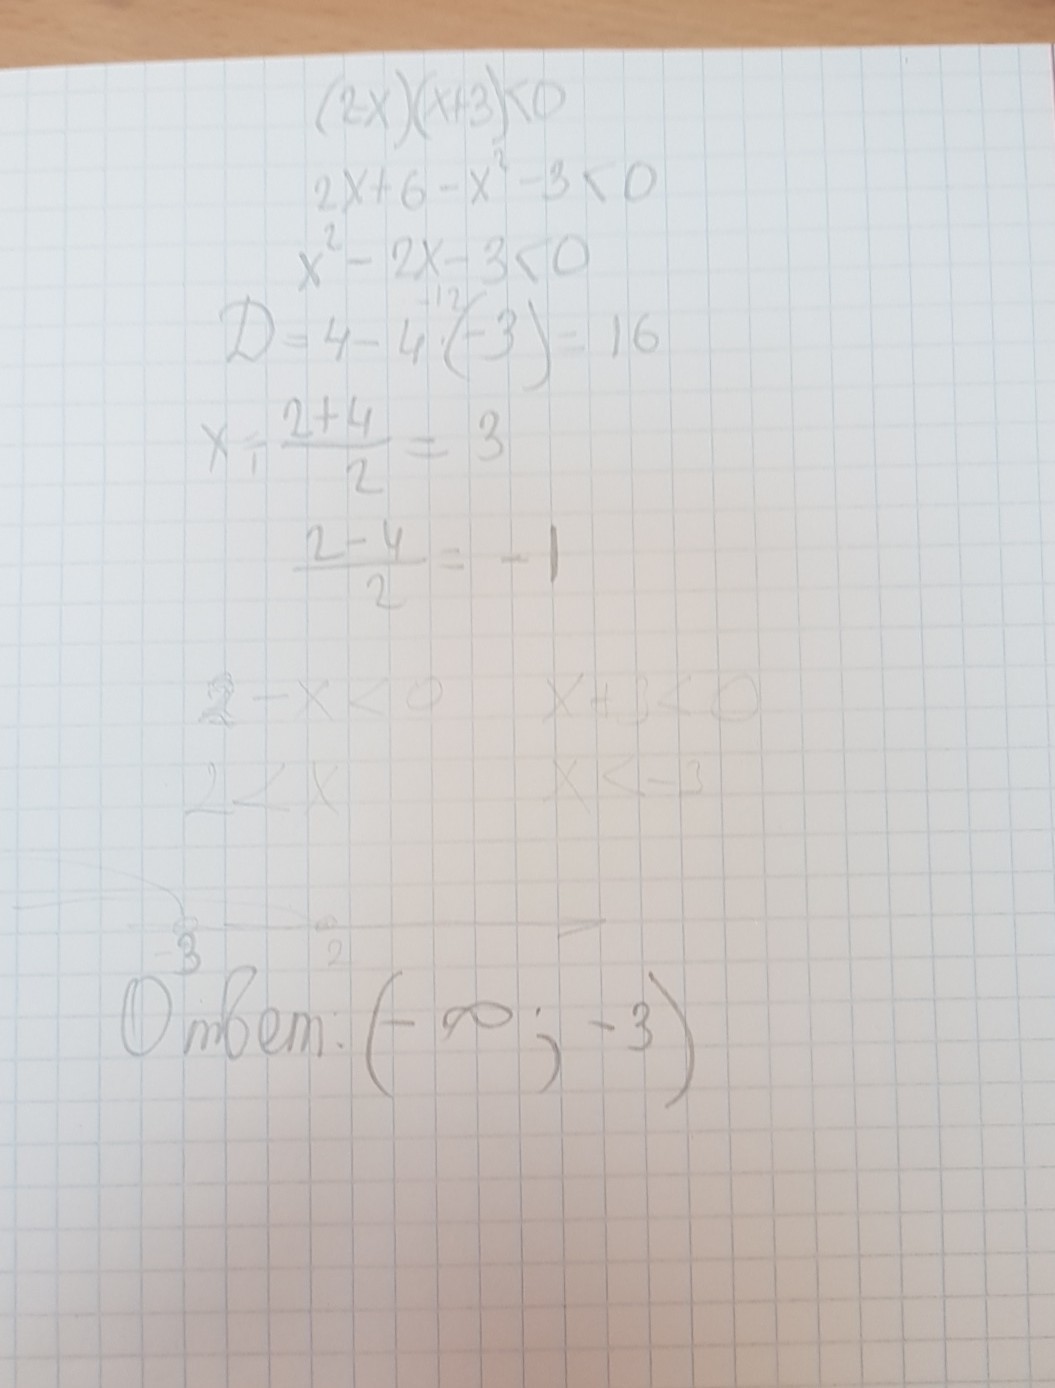 (2-x)(x+3)<0
2x+6-x²-3<0
x²-2x-3<0
-12
D=4-4·(-3)=16
x₁=\frac{2+4}{2}=3
\frac{2-4}{2}=-1
2-x<0 x+3<0
2<x x<-3
-3 2
Ответ: (-∞; -3)